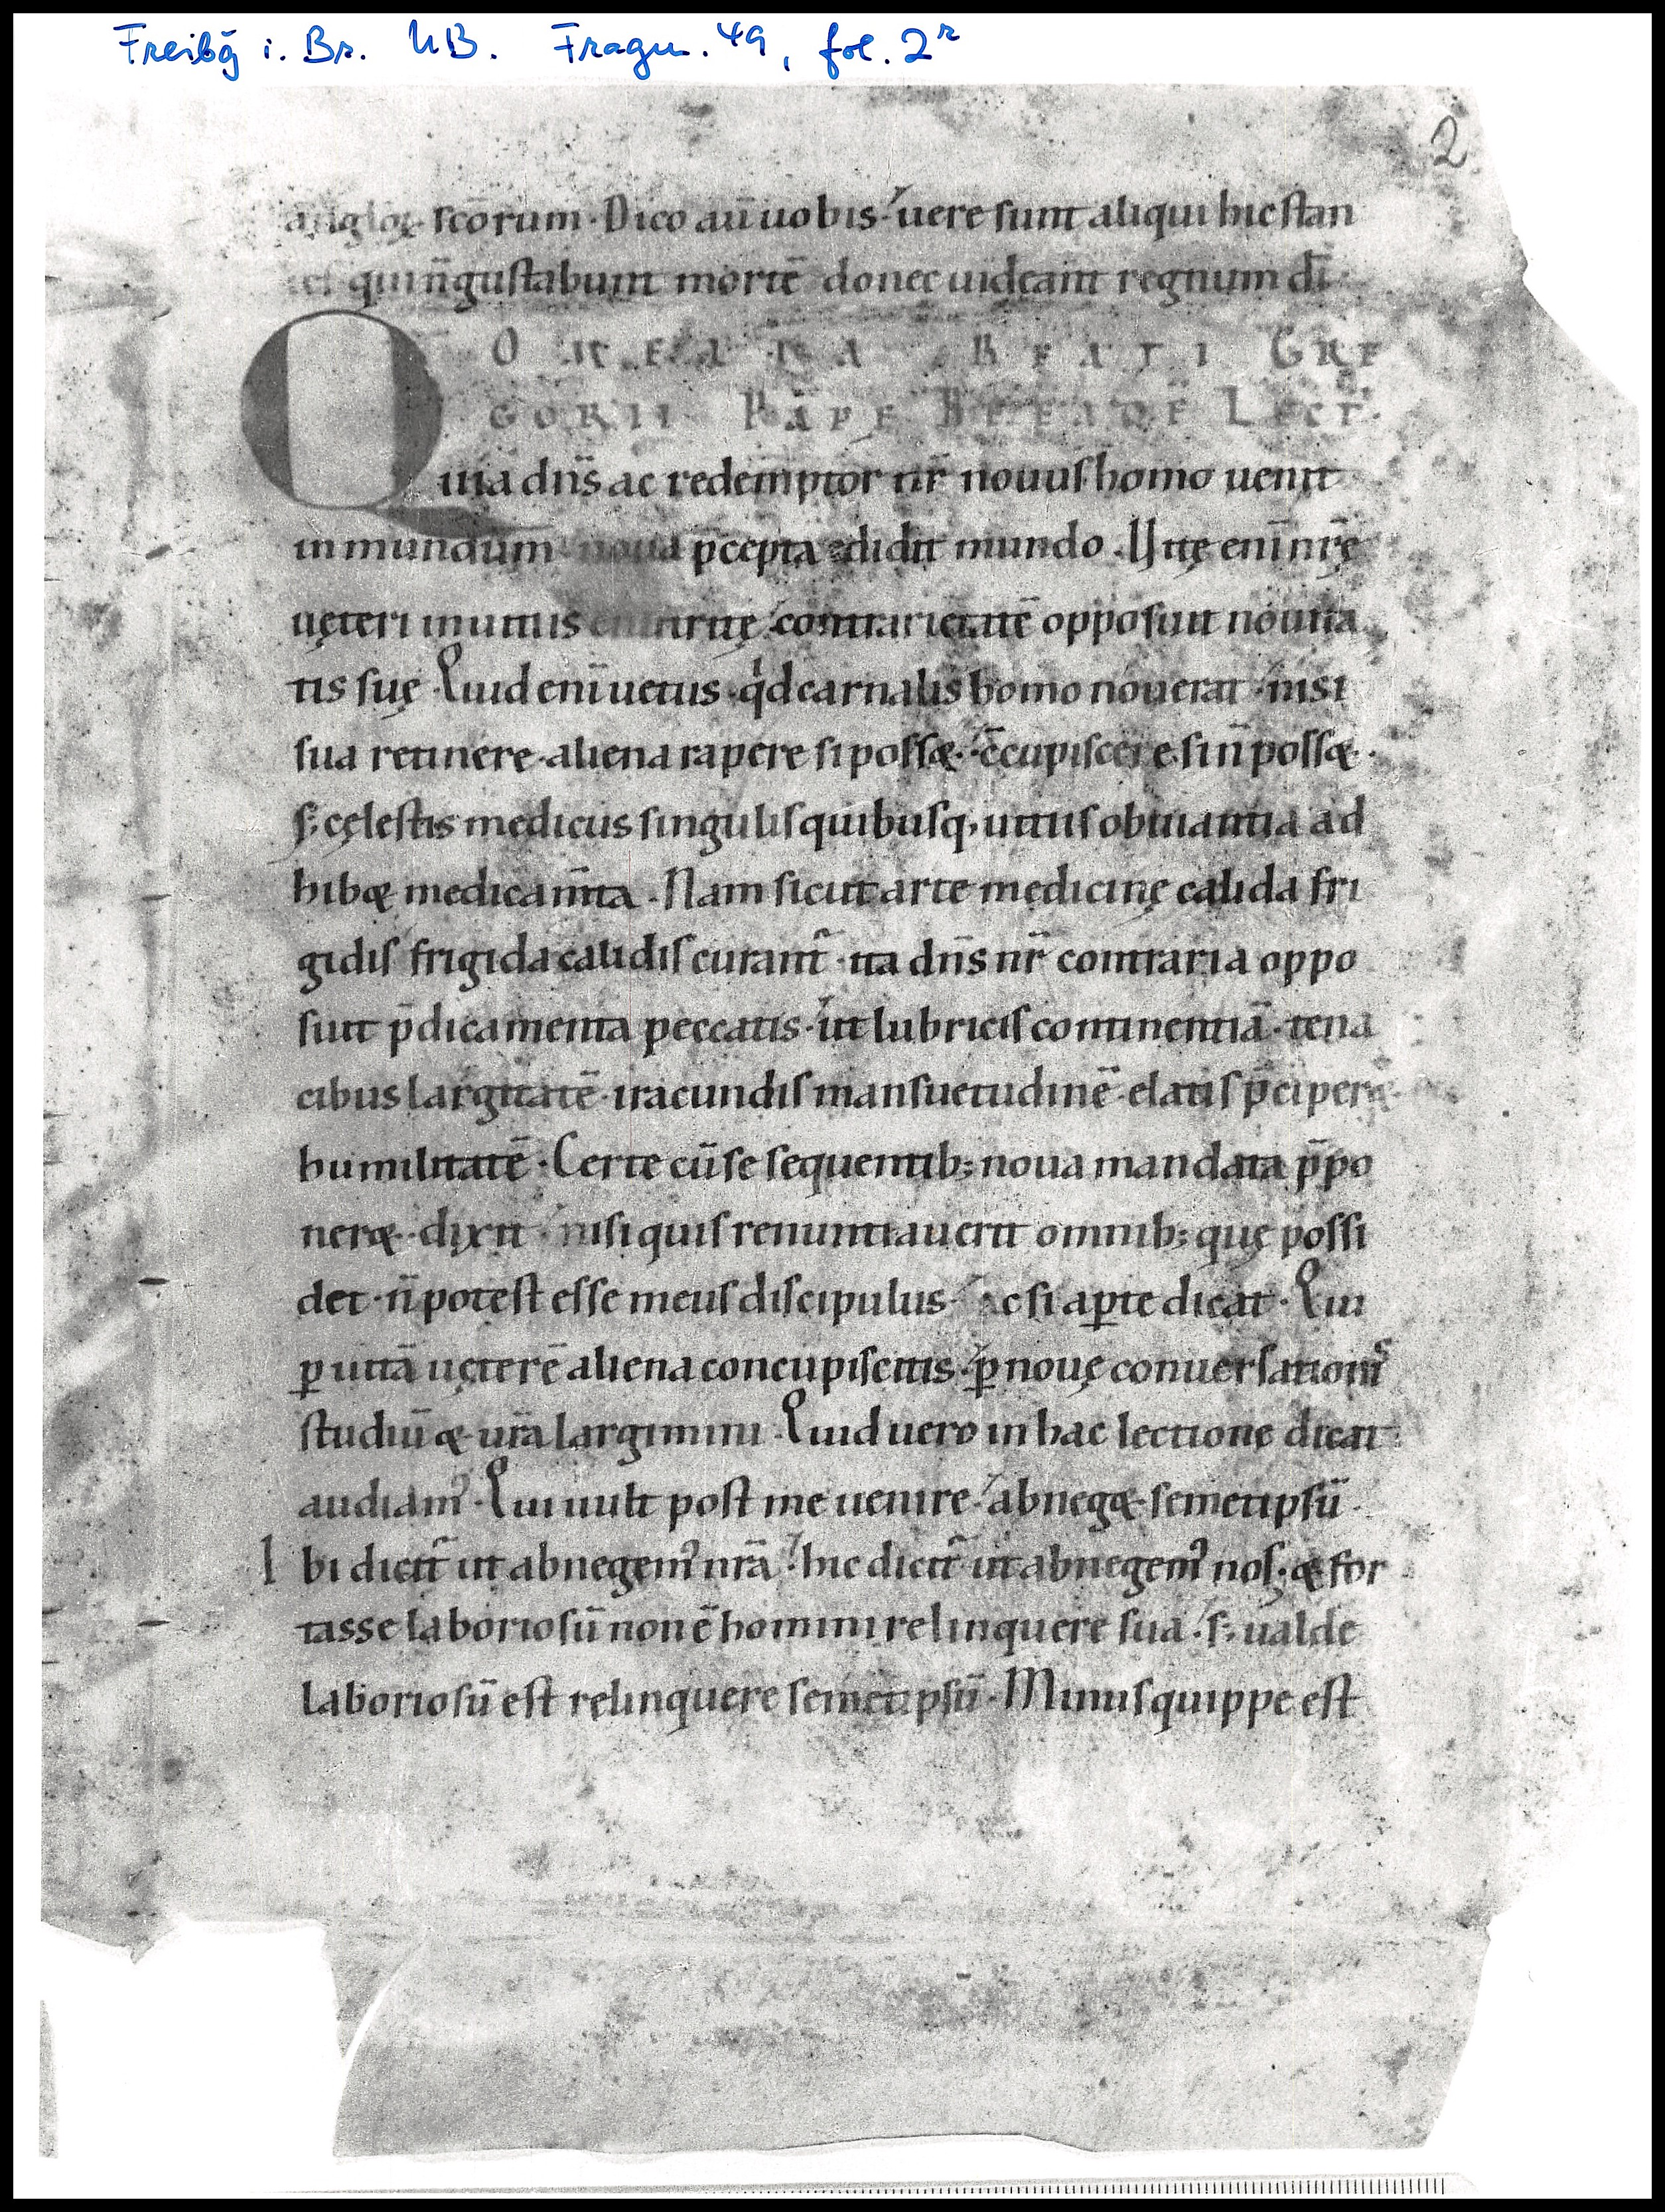 Freibg̃ i. Br. UB. Fragm. 49, fol. 2r
2
angloꝝ scōrum · Dico aū uobis · uere sunt aliqui hic stan
tes qui n̄ gustabunt mortē donec uideant regnum dī ·
OMELIA BEATI GRE
GORII PAPE DE EADE LECT̄ ·
Quia dn̄s ac redemptor nr̄ nouus homo uenit
in mundum noua p̄cepta dedit mundo . Vitę enī nrę̄
uęteri in uitiis enutritę contrarietatē opposuit nouita
tis suę . Quid enī uetus · qd carnalis homo nouerat · nisi
sua retinere · aliena rapere si possæ · c̄cupiscere · si n̄ possæ ·
s; cęlestis medicus singulis quibusq; uitiis obuiantia ad
hibæ medicam̄ta . Nam sicut arte medicinę calida fri
gidis frigida calidis curant᷑ · ita dn̄s nr̄ contraria oppo
suit p̄dicamenta peccatis · ut lubricis continentiā · tena
cibus largitatē · iracundis mansuetudinē · elatis p̄ciperæ
humilitatē · Certe cū se sequentib; noua mandata p̄po
neræ · dixit · nisi quis renuntiauerit omnib; quę possi
det · n̄ potest esse meus discipulus · ac si aꝑte dicat · Qui
ꝑ uitā uęterē aliena concupiscitis · ꝑ nouę conuersationis
studiū æ ur̄a largimini · Quid uero in hac lectione dicat
audiam᷒ · Qui uult post me uenire · abnegæ semetipsū ·
Ibi dicit᷑ ut abnegem᷒ nr̄a · hic dicit᷑ ut abnegem᷒ nos · æ for
tasse laboriosū non ē homini relinquere sua · s; ualde
laboriosū est relinquere semetipsū · Minus quippe est